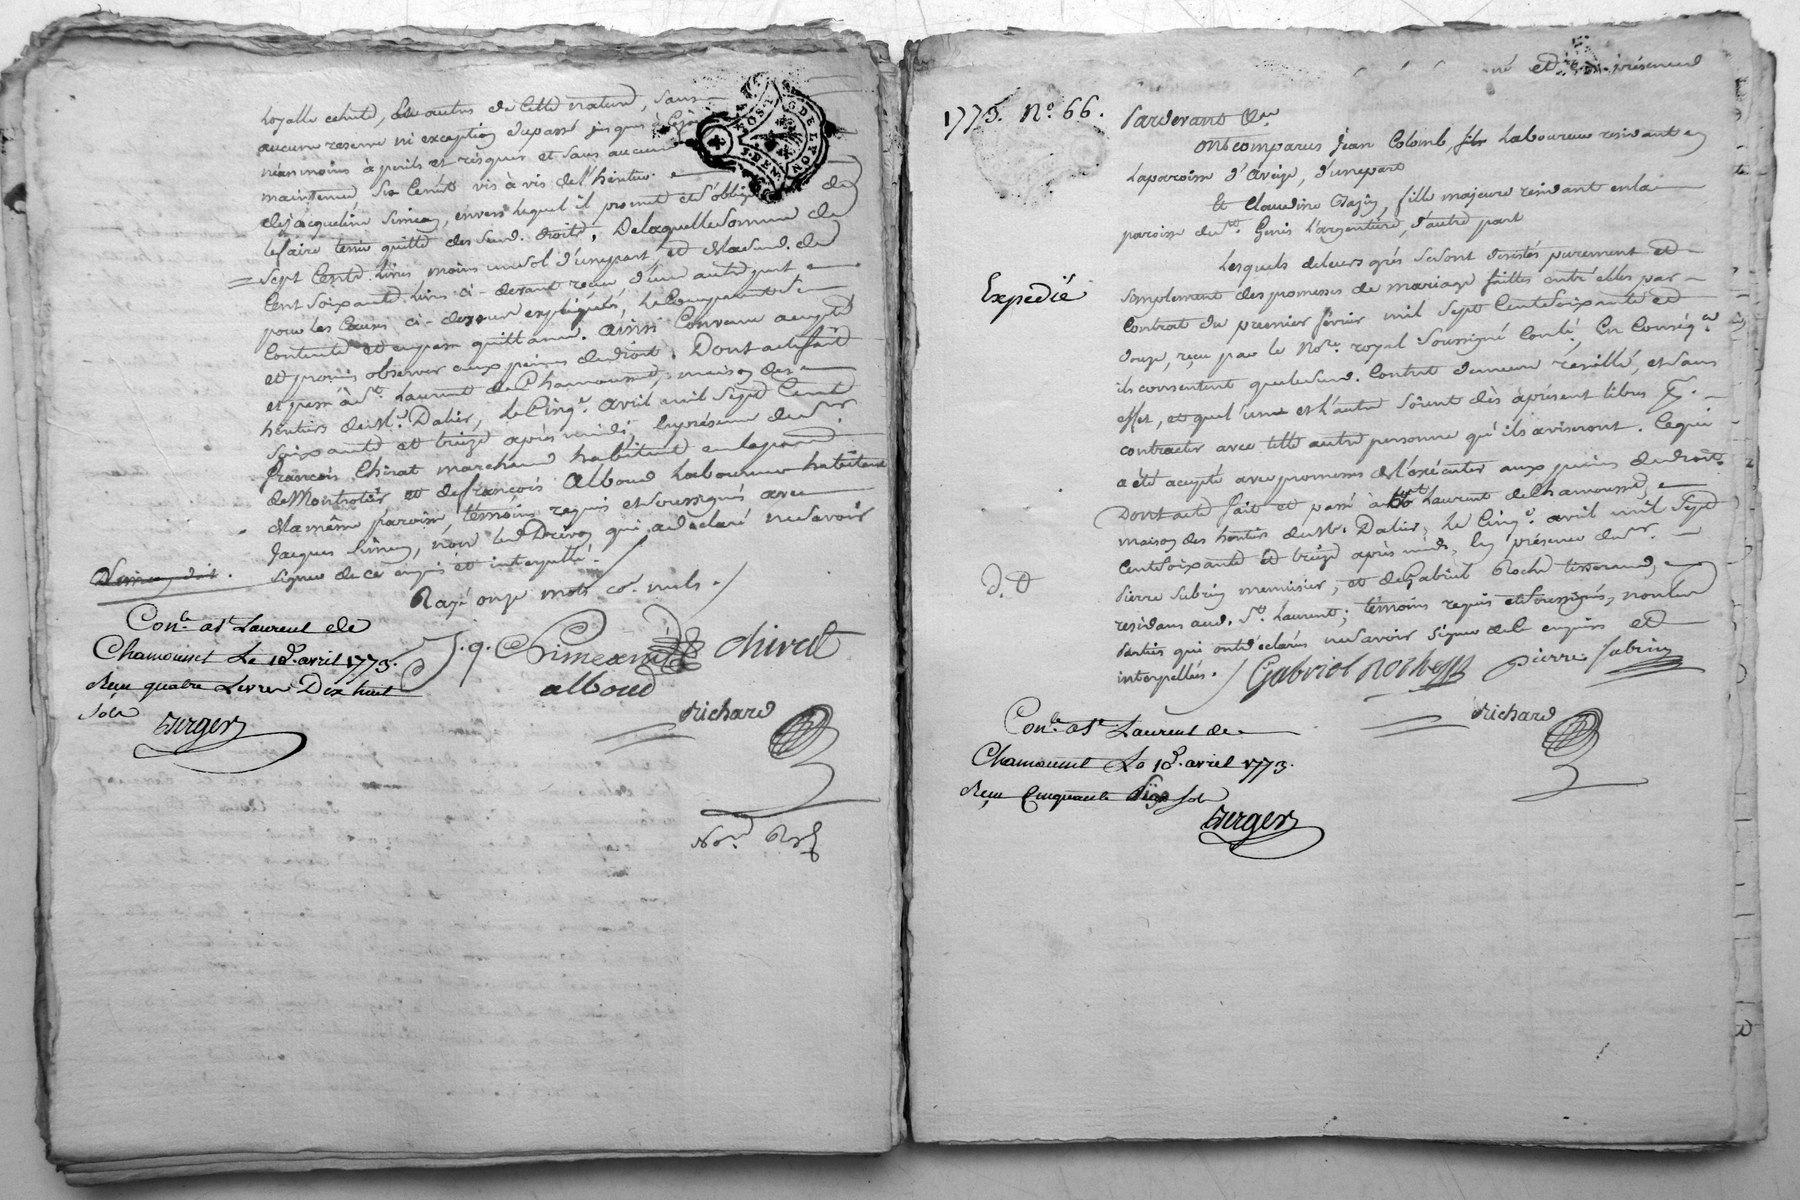 loyalle echute, et autres de cette nature, sans
aucune reserve ni exception du passé jusques à
néanmoins à perils et risques et sans aucune
maintenue, si ce n'est vis à vis de l'héritier
de jacqueline Simean, envers lequel il promet et s'oblige de
le faire tenir quitte des susd. droits, De laquelle somme de
Sept Cents livres moins un sol d'une part, et de la susd. de
Cent soixante livres ci-devant reçue, d'une autre part
pour les Causes ci-dessus expliquées, le Comparant se
Contente et en passe quittance. ainsi Convenu accepté
et promis observer aux peines de droit. Dont acte fait
et passé à St. Laurent de Chamousset, maison des
héritiers de Mr. Dalier, le Cinq. avril mil Sept Cent
soixante et treize après midi, En présence de Sr.
françois Chirat marchand habitant en la paroisse
de Montrotier et de françois Alboud Laboureur habitant
de la même paroisse, témoins requis et soussignés avec
Jacques Simean, non led. qui a déclaré ne savoir
signer de ce enquis et interpellé.
Rayé onze mots co. nuls.
Conle. a St Laurent de
Chamousset Le 18. avril 1773.
Reçu quatre Livres Dix huit
sols
Berger
J. q. Simean
Chirat
alboud
Richard
Nore. Ryl
ROY
G DE LYON
1775. No. 66.
Pardevant &a
Ont comparus Jean Colomb, fils Laboureur residant en
La paroisse d'Aveize, d'une part
Et Claudine, fille majeure residant en la
paroisse de St. Genis l'argentiere, d'autre part
Lesquels de leurs grés se sont desistés purement et
Expedié
simplement des promesses de mariage faittes entre elles par
Contrat du premier février mil Sept Cent Soixante et
douze, reçu par le Nore. royal Soussigné Conlé, En Conséqce.
ils consentent que le susd. Contrat demeure resillé, et sans
effet, et que l'une et l'autre soient dès à présent libres
contracter avec telle autre personne qu'ils aviseront. Ce qui
a été accepté avec promesse de l'exécuter aux peines de droit.
Dont acte fait et passé à St Laurent de Chamousset,
maison des héritiers de Mr. Dalier, le Cinq. avril mil Sept
Cent Soixante et treize après midi, En présence de Sr.
d. d
Pierre Subrin menuisier, et de Gabriel Roche tisserand,
residans aud. St. Laurent; témoins requis et soussignés, non les
Parties qui ont déclarés ne savoir Signer de ce enquis et
interpellés.
Gabriel Roche
pierre Subrin
Richard
Conle. a St. Laurent de
Chamousset Le 18. avril 1773.
Reçu Cinquante sols
Berger